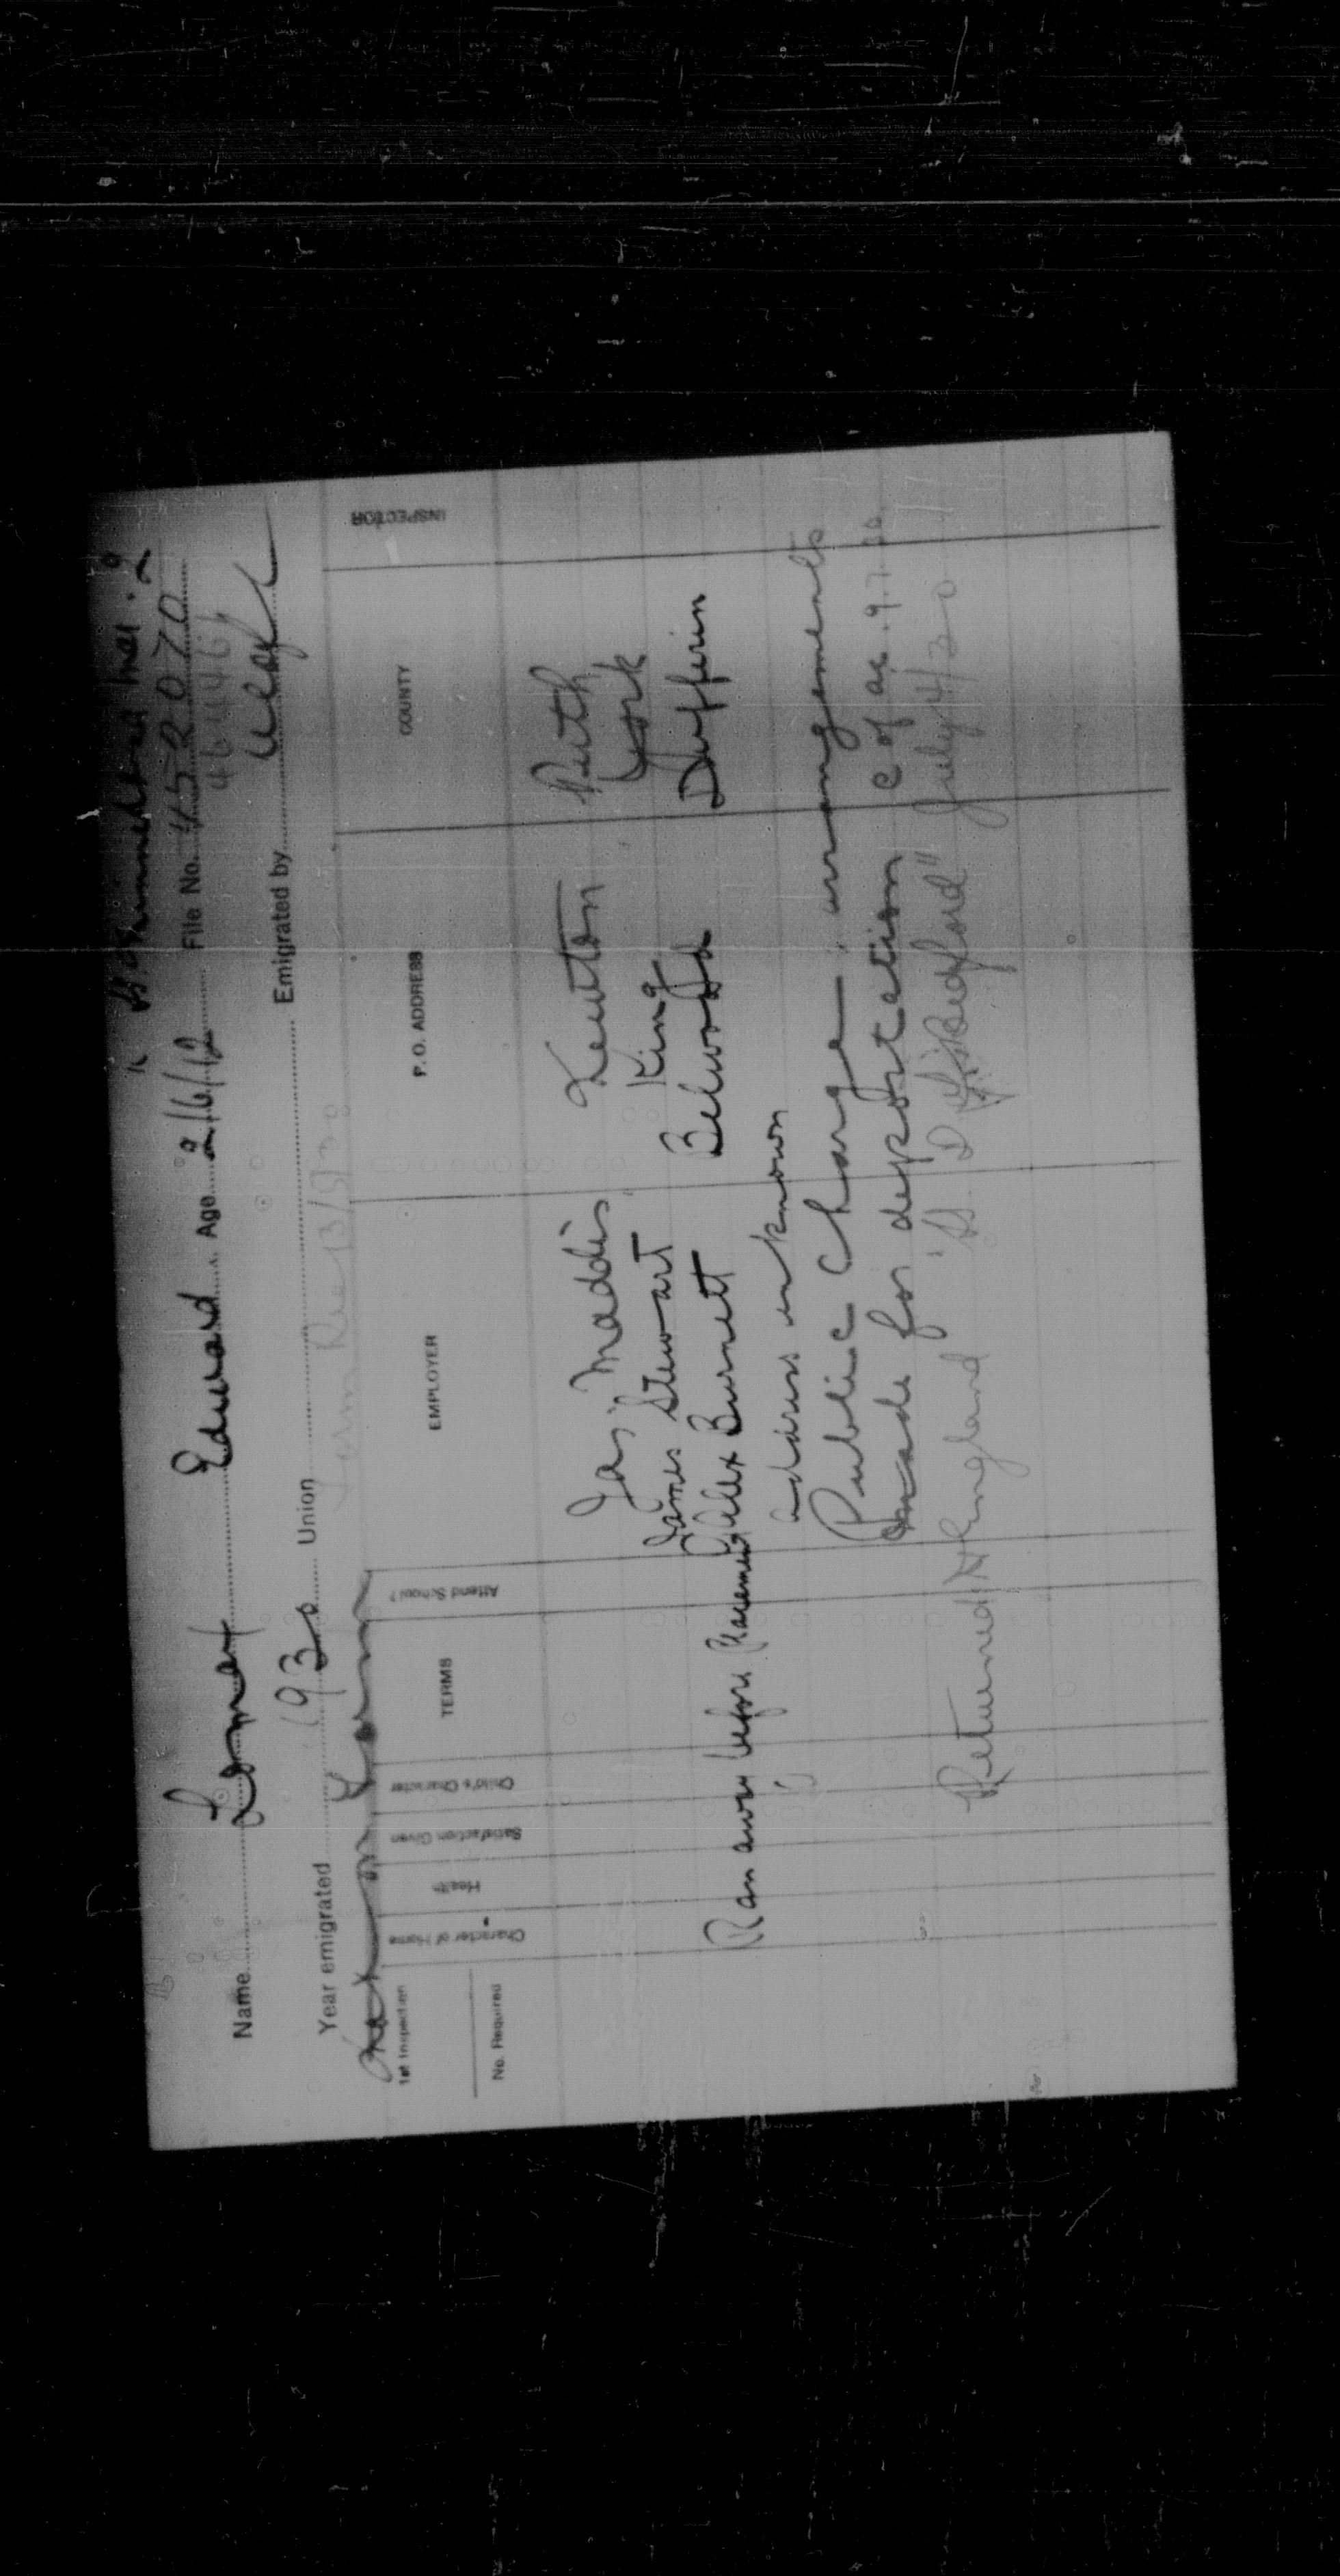 "Minnedosa" Mar. 2
Name Lomax Edward Age 2/6/12 File No. 452070
46446
Year emigrated 1930 Union Emigrated by
not on Farm
1st Inspection No. Required Character of Home Health Satisfaction Given Child's Character TERMS Attend School? EMPLOYER P. O. ADDRESS COUNTY INSPECTOR
Jas. Maddis Newton Perth
James Stewart King York
Ran away before Placement Alex Burnett Belwood Dufferin
address unknown
Public Charge arrangements
made for deportation C of ac. 9.7.30
Returned to England "S.S. D. of Bedford" July 4/30